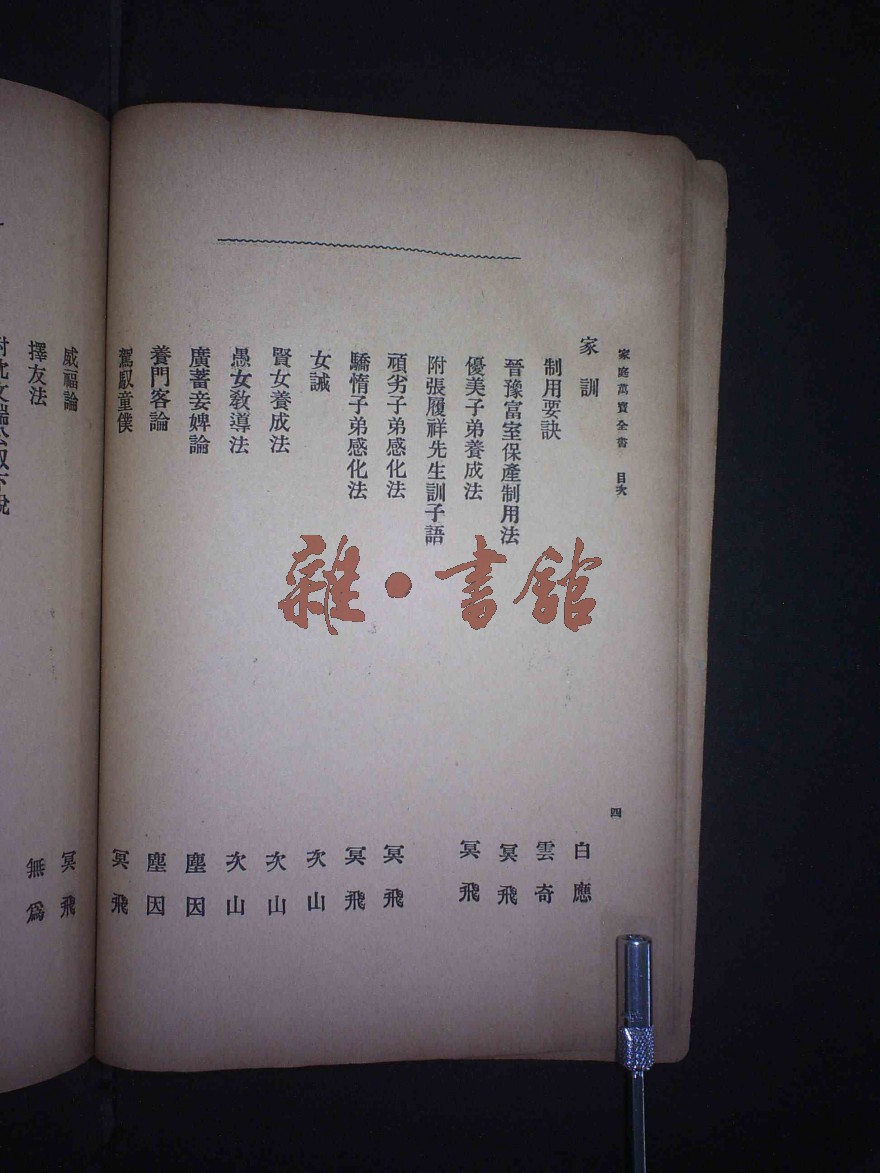 家庭萬寶全書 目次 四
家訓 白應
制用要訣 雲奇
晉豫富室保產制用法 冥飛
優美子弟養成法 冥飛
附張履祥先生訓子語
頑劣子弟感化法 冥飛
驕惰子弟感化法 冥飛
女誡 次山
賢女養成法 次山
愚女教導法 次山
廣蓄妾婢論 塵因
養門客論 塵因
駕馭童僕 冥飛
威福論 冥飛
擇友法 無為
雜·書館